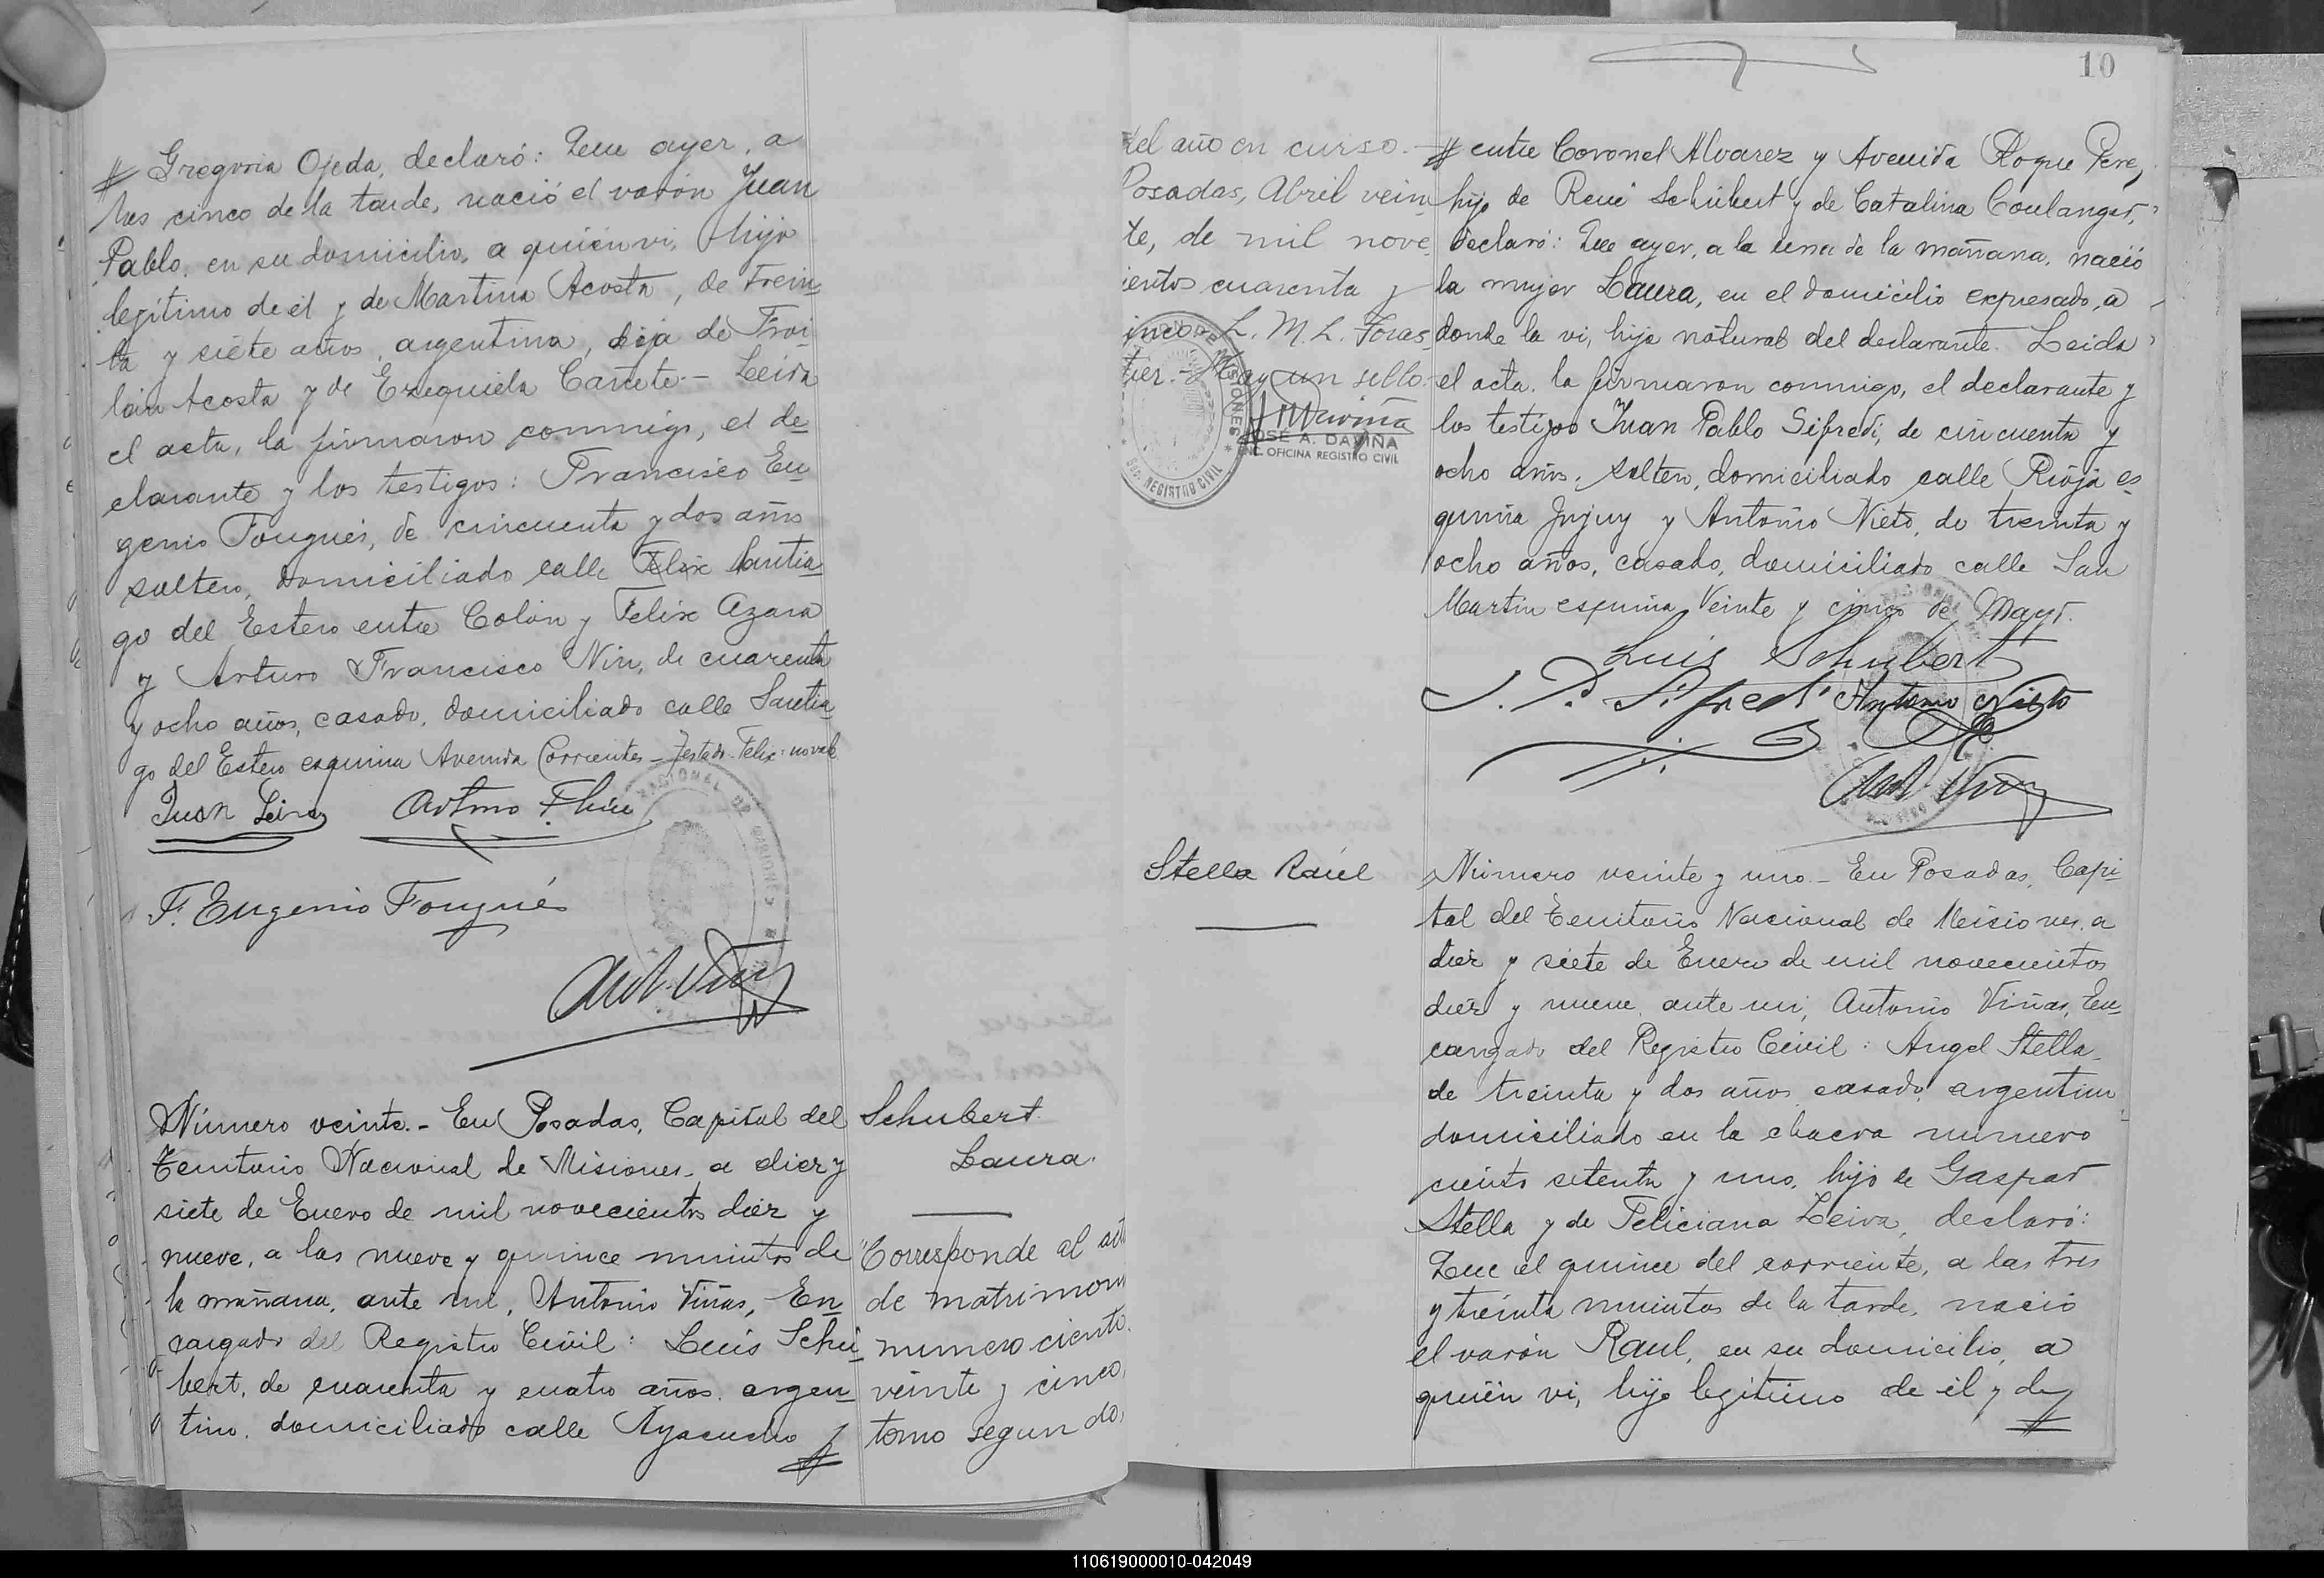 # Gregoria Ojeda, declaró: Que ayer, a
las cinco de la tarde, nació el varón Juan
Pablo, en su domicilio, a quién vi, hijo
legítimo de él y de Martina Acosta, de trein-
ta y siete años, argentina, hija de Froi-
lán Acosta y de Ezequiela Cañete.- Leida
el acta, la firmaron conmigo, el de-
clarante y los testigos: Francisco Eu-
genio Fouguès, de cincuenta y dos años
soltero, domiciliado calle Felix Santia-
go del Estero entre Colón y Felix Azara
y Arturo Francisco Niu, de cuarenta
y ocho años, casado, domiciliado calle Santia-
go del Estero esquina Avenida Corrientes - Testado: Felix: no vale
Juan Leiva
F. Eugenio Fouguès
Número veinte.- En Posadas, Capital del
Territorio Nacional de Misiones, a diez y
siete de Enero de mil novecientos diez y
nueve, a las nueve y quince minutos de
la mañana, ante mi, Antonio Viñas, En-
cargado del Registro Civil: Luis Schü-
bert, de cuarenta y cuatro años, argen-
tino, domiciliado calle Ayacucho #
Schubert
Laura.
"Corresponde al
de matrimon
numero ciento
veinte y cinco,
tomo segundo,
del año en curso.-
Posadas, Abril vein-
te, de mil nove
cientos cuarenta y
cinco. L. M. L. Foras-
tier.- Hay un sello.-
JOSÉ A. DAVIÑA
ENC. OFICINA REGISTRO CIVIL
10
# entre Coronel Alvarez y Avenida Roque Perez,
hijo de René Schübert y de Catalina Coulanger,
declaró: Que ayer, a la una de la mañana, nació
la mujer Laura, en el domicilio expresado, a
donde la vi, hija natural del declarante. Leida
el acta, la firmaron conmigo, el declarante y
los testigos Juan Pablo Sifredi, de cincuenta y
ocho años, soltero, domiciliado calle Rioja es-
quina Jujuy y Antonio Nieto, de treinta y
ocho años, casado, domiciliado calle San
Martin esquina Veinte y cinco de Mayo.
Luis Schubert
J. P. Sifredi Antonio Nieto
Stella Raúl
Número veinte y uno.- En Posadas, Capi-
tal del Territorio Nacional de Misiones, a
diez y siete de Enero de mil novecientos
diez y nueve, ante mi, Antonio Viñas, En-
cargado del Registro Civil: Angel Stella,
de treinta y dos años, casado, argentino,
domiciliado en la chacra numero
ciento setenta y uno, hijo de Gaspar
Stella y de Feliciana Leiva, declaró:
Que el quince del corriente, a las tres
y treinta minutos de la tarde, nació
el varón Raul, en su domicilio, a
quién vi, hijo legítimo de él y de #
110619000010-042049